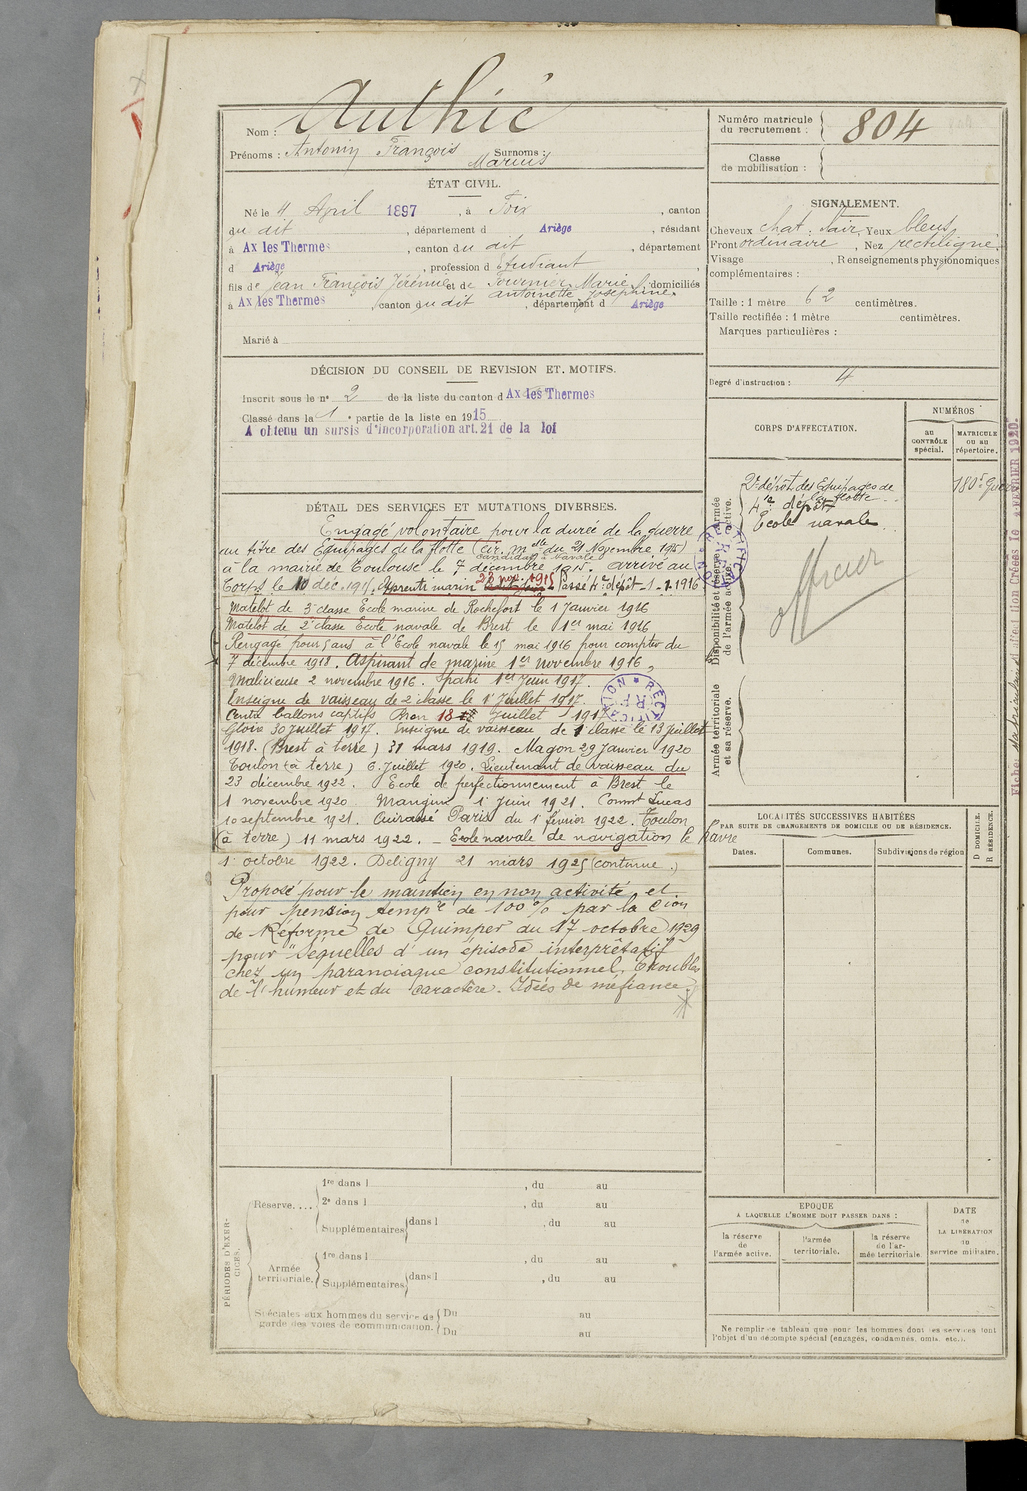 Nom : Authié
Prénoms : Antonin François Surnoms :
Marius
ÉTAT CIVIL.
Né le 4 April 1897, à Foix, canton
du dit, département d Ariège, résidant
à Ax les Thermes, canton du dit, département
d Ariège, profession d Etudiant,
fils de Jean François Jérémie et de Fournier Marie domiciliés
Antoinette Joséphine
à Ax les Thermes, canton du dit, département d Ariège
Marié à
DÉCISION DU CONSEIL DE REVISION ET MOTIFS.
Inscrit sous le n° 2 de la liste du canton d Ax les Thermes
Classé dans la 1e partie de la liste en 1915
A obtenu un sursis d'incorporation art. 21 de la loi
DÉTAIL DES SERVICES ET MUTATIONS DIVERSES.
Engagé volontaire pour la durée de la guerre
au titre des Equipages de la Flotte (cir. mlle du 21 Novembre 1915)
candidat E. navale
à la mairie de Toulouse le 7 décembre 1915. Arrivé au
22 nov. 1915
Corps le 10 déc. 1915. Apprenti marin Passé 4e dépôt 1-1-1916
Matelot de 3e classe Ecole marine de Rochefort le 1 Janvier 1916
Matelot de 2e classe Ecole navale de Brest le 1er mai 1916
Rengagé pour 5 ans à l'Ecole navale le 15 mai 1916 pour compter du
7 décembre 1918. Aspirant de marine 1er novembre 1916,
Malicieuse 2 novembre 1916. Spahi 1er Juin 1917.
Enseigne de vaisseau de 2e classe le 1er Juillet 1917.
Centre ballons captifs Brest 18 Juillet 1917
Gloire 30 Juillet 1917. Enseigne de vaisseau de 1 classe le 13 Juillet
1918. (Brest à terre) 31 mars 1919. Magon 29 Janvier 1920
Toulon (à terre) 6 Juillet 1920. Lieutenant de vaisseau du
23 décembre 1922. Ecole de perfectionnement à Brest le
1 novembre 1920 Mangini 1 Juin 1921. Commt Lucas
10 septembre 1921. Cuirassé Paris du 1 février 1922. Toulon
(à terre) 11 mars 1922. - Ecole navale de navigation le havre
1 octobre 1922. Deligny 21 mars 1925 (continue.)
Proposé pour le maintien en non activité et
pour pension tempre de 100% par la Cion
de Réforme de Quimper du 17 octobre 1929
pour "séquelles d'un épisode interprétatif
chez un paranoiaque constitutionnel. Troubles
de l'humeur et du caractère. Idées de méfiance.
PÉRIODES D'EXERCICES.
Réserve....
1re dans l , du au
2e dans l , du au
Supplémentaires dans l , du au
Armée territoriale.
1re dans l , du au
Supplémentaires dans l , du au
Spéciales aux hommes du service de
garde des voies de communication.
Du au
Du au
Numéro matricule
du recrutement :
804
Classe
de mobilisation :
SIGNALEMENT.
Cheveux chat. clair, Yeux bleus
Front ordinaire, Nez rectiligne
Visage , Renseignements physionomiques
complémentaires :
Taille : 1 mètre 62 centimètres.
Taille rectifiée : 1 mètre centimètres.
Marques particulières :
Degré d'instruction : 4
CORPS D'AFFECTATION.
NUMÉROS
au
CONTRÔLE
spécial.
MATRICULE
ou au
répertoire.
Armée active.
2e dépôt des Equipages de
la flotte
4e dépôt
Ecole navale
Disponibilité et réserve
de l'armée active.
officier
Armée territoriale
et sa réserve.
RECTIFICATION
R F
RECTIFICATION
LOCALITÉS SUCCESSIVES HABITÉES
PAR SUITE DE CHANGEMENTS DE DOMICILE OU DE RÉSIDENCE.
Dates.
Communes.
Subdivisions de région
D DOMICILE.
R RÉSIDENCE.
EPOQUE
A LAQUELLE L'HOMME DOIT PASSER DANS :
la réserve
de
l'armée active.
l'armée
territoriale.
la réserve
de l'ar-
mée territoriale.
DATE
de
LA LIBÉRATION
du
service militaire.
Ne remplir ce tableau que pour les hommes dont les services font
l'objet d'un décompte spécial (engagés, condamnés, omis, etc.).